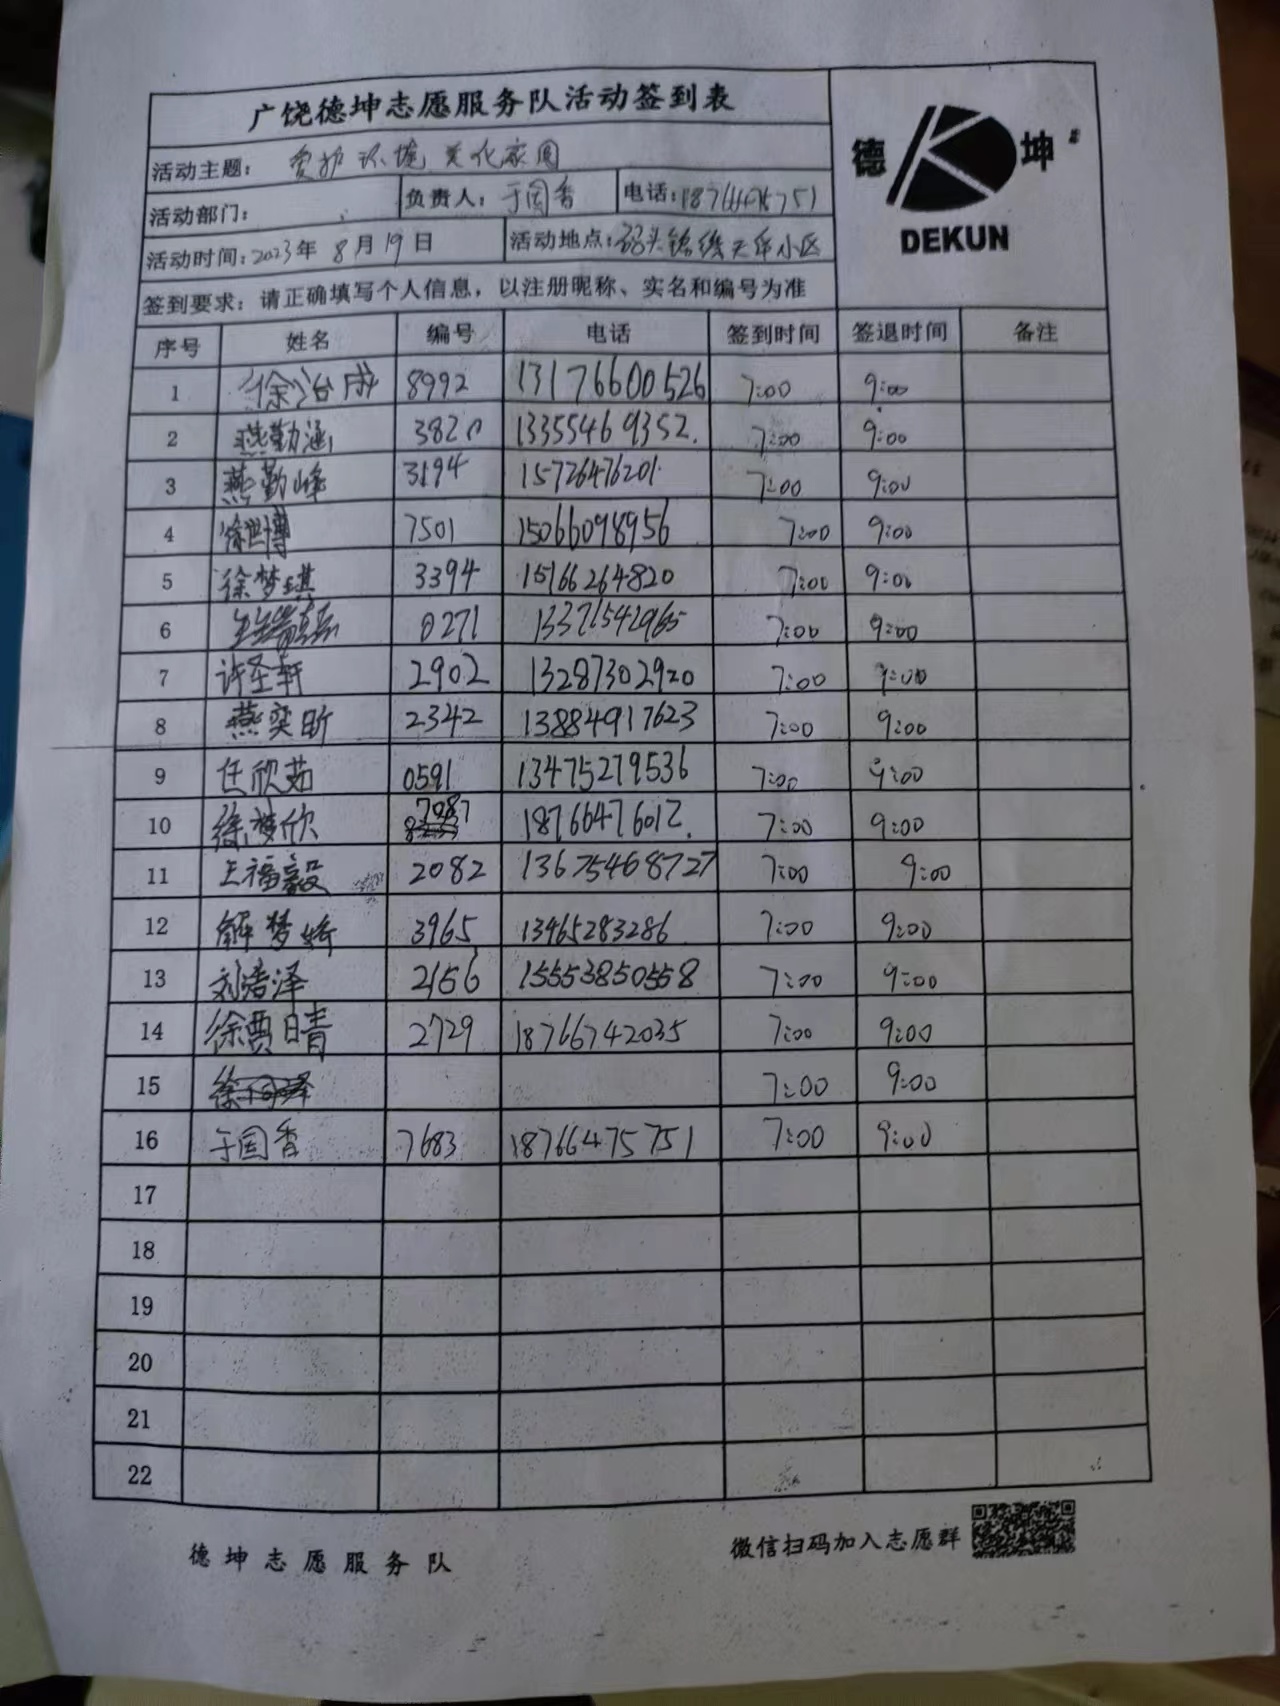 广饶德坤志愿服务队活动签到表
德 坤
DEKUN
活动主题: 爱护环境 美化家园
活动部门: 负责人: 于国香 电话:18766475751
活动时间:2023年 8月19日 活动地点:码头锦绣天年小区
签到要求: 请正确填写个人信息, 以注册昵称、实名和编号为准
序号 姓名 编号 电话 签到时间 签退时间 备注
1 徐治成 8992 13176600526 7:00 9:00
2 燕勤涵 3820 13355469352. 7:00 9:00
3 燕勤峰 3194 15726476201 7:00 9:00
4 徐世博 7501 15066098956 7:00 9:00
5 徐梦琪 3394 15166264820 7:00 9:00
6 0271 13371542965 7:00 9:00
7 许圣轩 2902 13287302920 7:00 9:00
8 燕奕昕 2342 13884917623 7:00 9:00
9 任欣茹 0591 13475279536 7:00 9:00
10 徐梦欣 7087 18766476012. 7:00 9:00
11 王福毅 2082 13675468727 7:00 9:00
12 解梦娇 3965 13465283286 7:00 9:00
13 刘浩泽 2156 15553850558 7:00 9:00
14 徐贾晴 2729 18766742035 7:00 9:00
15 7:00 9:00
16 于国香 7683 18766475751 7:00 9:00
17
18
19
20
21
22
德坤志愿服务队
微信扫码加入志愿群